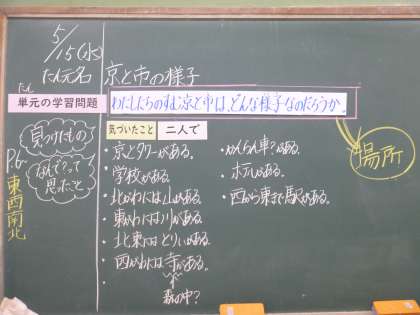 5/15(水)
たん元名
京と市の様子
たん
単元の学習問題
わたしたちのすむ京と市は、どんな様子なのだろうか。
気づいたこと
二人で
見つけたもの
なんで?って
思ったこと
P.6~
東西南北
・京とタワーがある。
・学校がある。
・北がわには山がある。
・東がわには川がある。
・北東にはとりいがある。
・西がわには寺がある。
森の中?
・かんらん車?がある。
・ホテルがある。
・西から東まで駅がある。
場所